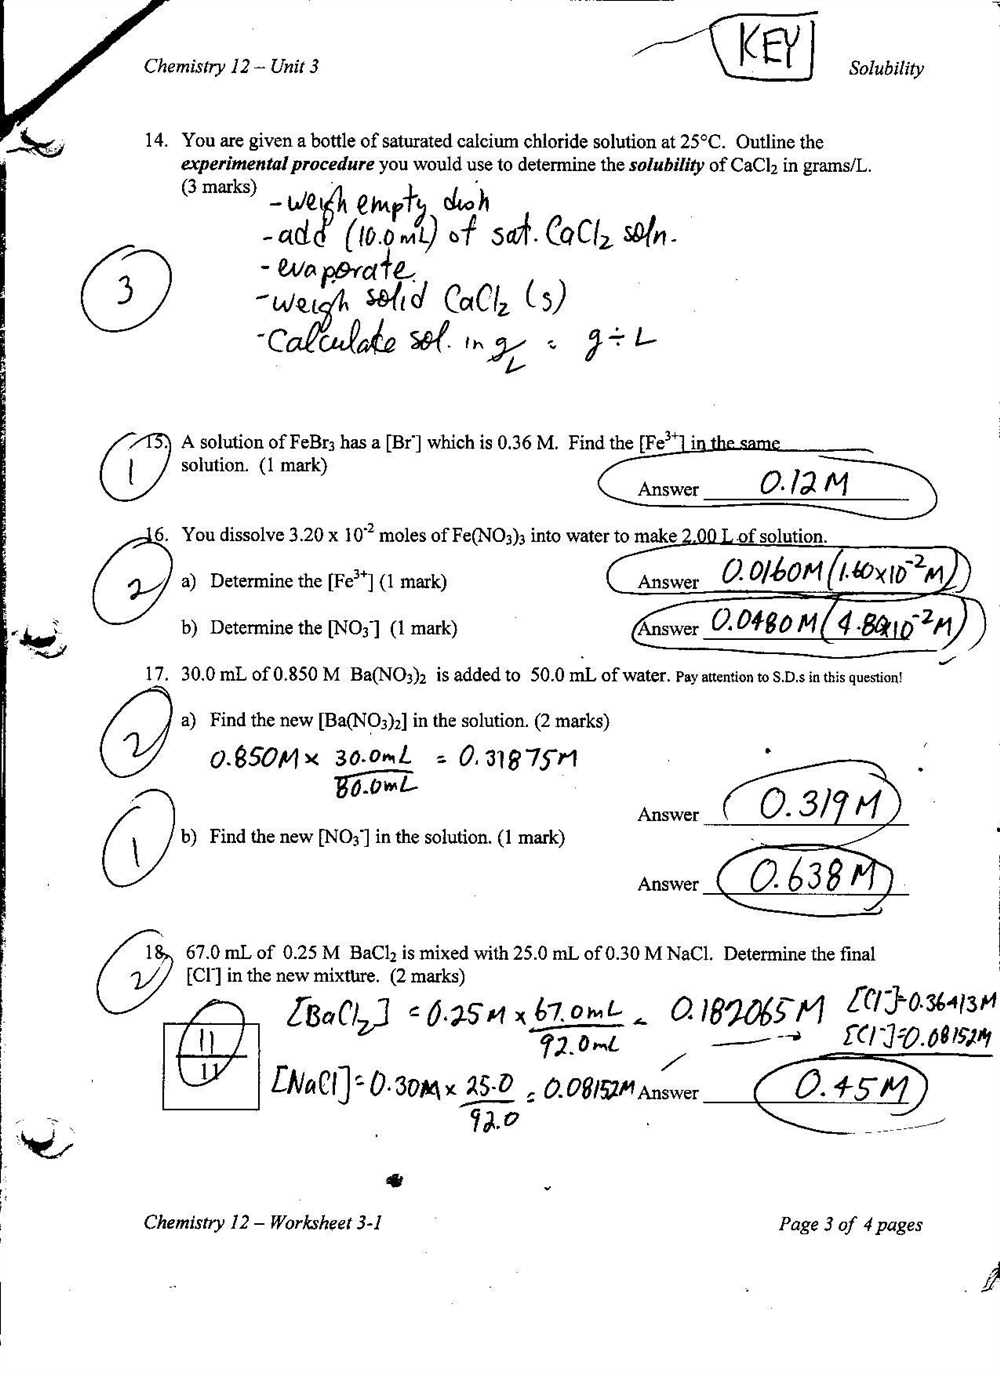 KEY
Chemistry 12 – Unit 3
Solubility
14. You are given a bottle of saturated calcium chloride solution at 25°C. Outline the
experimental procedure you would use to determine the solubility of CaCl₂ in grams/L.
(3 marks)
-weigh empty dish
-add (10.0mL) of sat. CaCl₂ soln.
-evaporate
-weigh solid CaCl₂ (s)
-Calculate sol. in g/L = g÷L
3
15. A solution of FeBr₃ has a [Br⁻] which is 0.36 M. Find the [Fe³⁺] in the same
solution. (1 mark)
1
Answer 0.12M
16. You dissolve 3.20 x 10⁻² moles of Fe(NO₃)₃ into water to make 2.00 L of solution.
2
a) Determine the [Fe³⁺] (1 mark)
Answer 0.0160M (1.60x10⁻²M)
b) Determine the [NO₃⁻] (1 mark)
Answer 0.0480M (4.80x10⁻²M)
17. 30.0 mL of 0.850 M Ba(NO₃)₂ is added to 50.0 mL of water. Pay attention to S.D.s in this question!
2
a) Find the new [Ba(NO₃)₂] in the solution. (2 marks)
0.850M x 30.0mL/80.0mL = 0.31875M
Answer 0.319M
1
b) Find the new [NO₃⁻] in the solution. (1 mark)
Answer 0.638M
18. 67.0 mL of 0.25 M BaCl₂ is mixed with 25.0 mL of 0.30 M NaCl. Determine the final
2
[Cl⁻] in the new mixture. (2 marks)
[BaCl₂] = 0.25M x 67.0mL/92.0mL = 0.182065M [Cl⁻]=0.36413M
[Cl⁻]=0.08152M
11/11
[NaCl]=0.30M x 25.0/92.0 = 0.08152M Answer 0.45M
Chemistry 12 – Worksheet 3-1
Page 3 of 4 pages